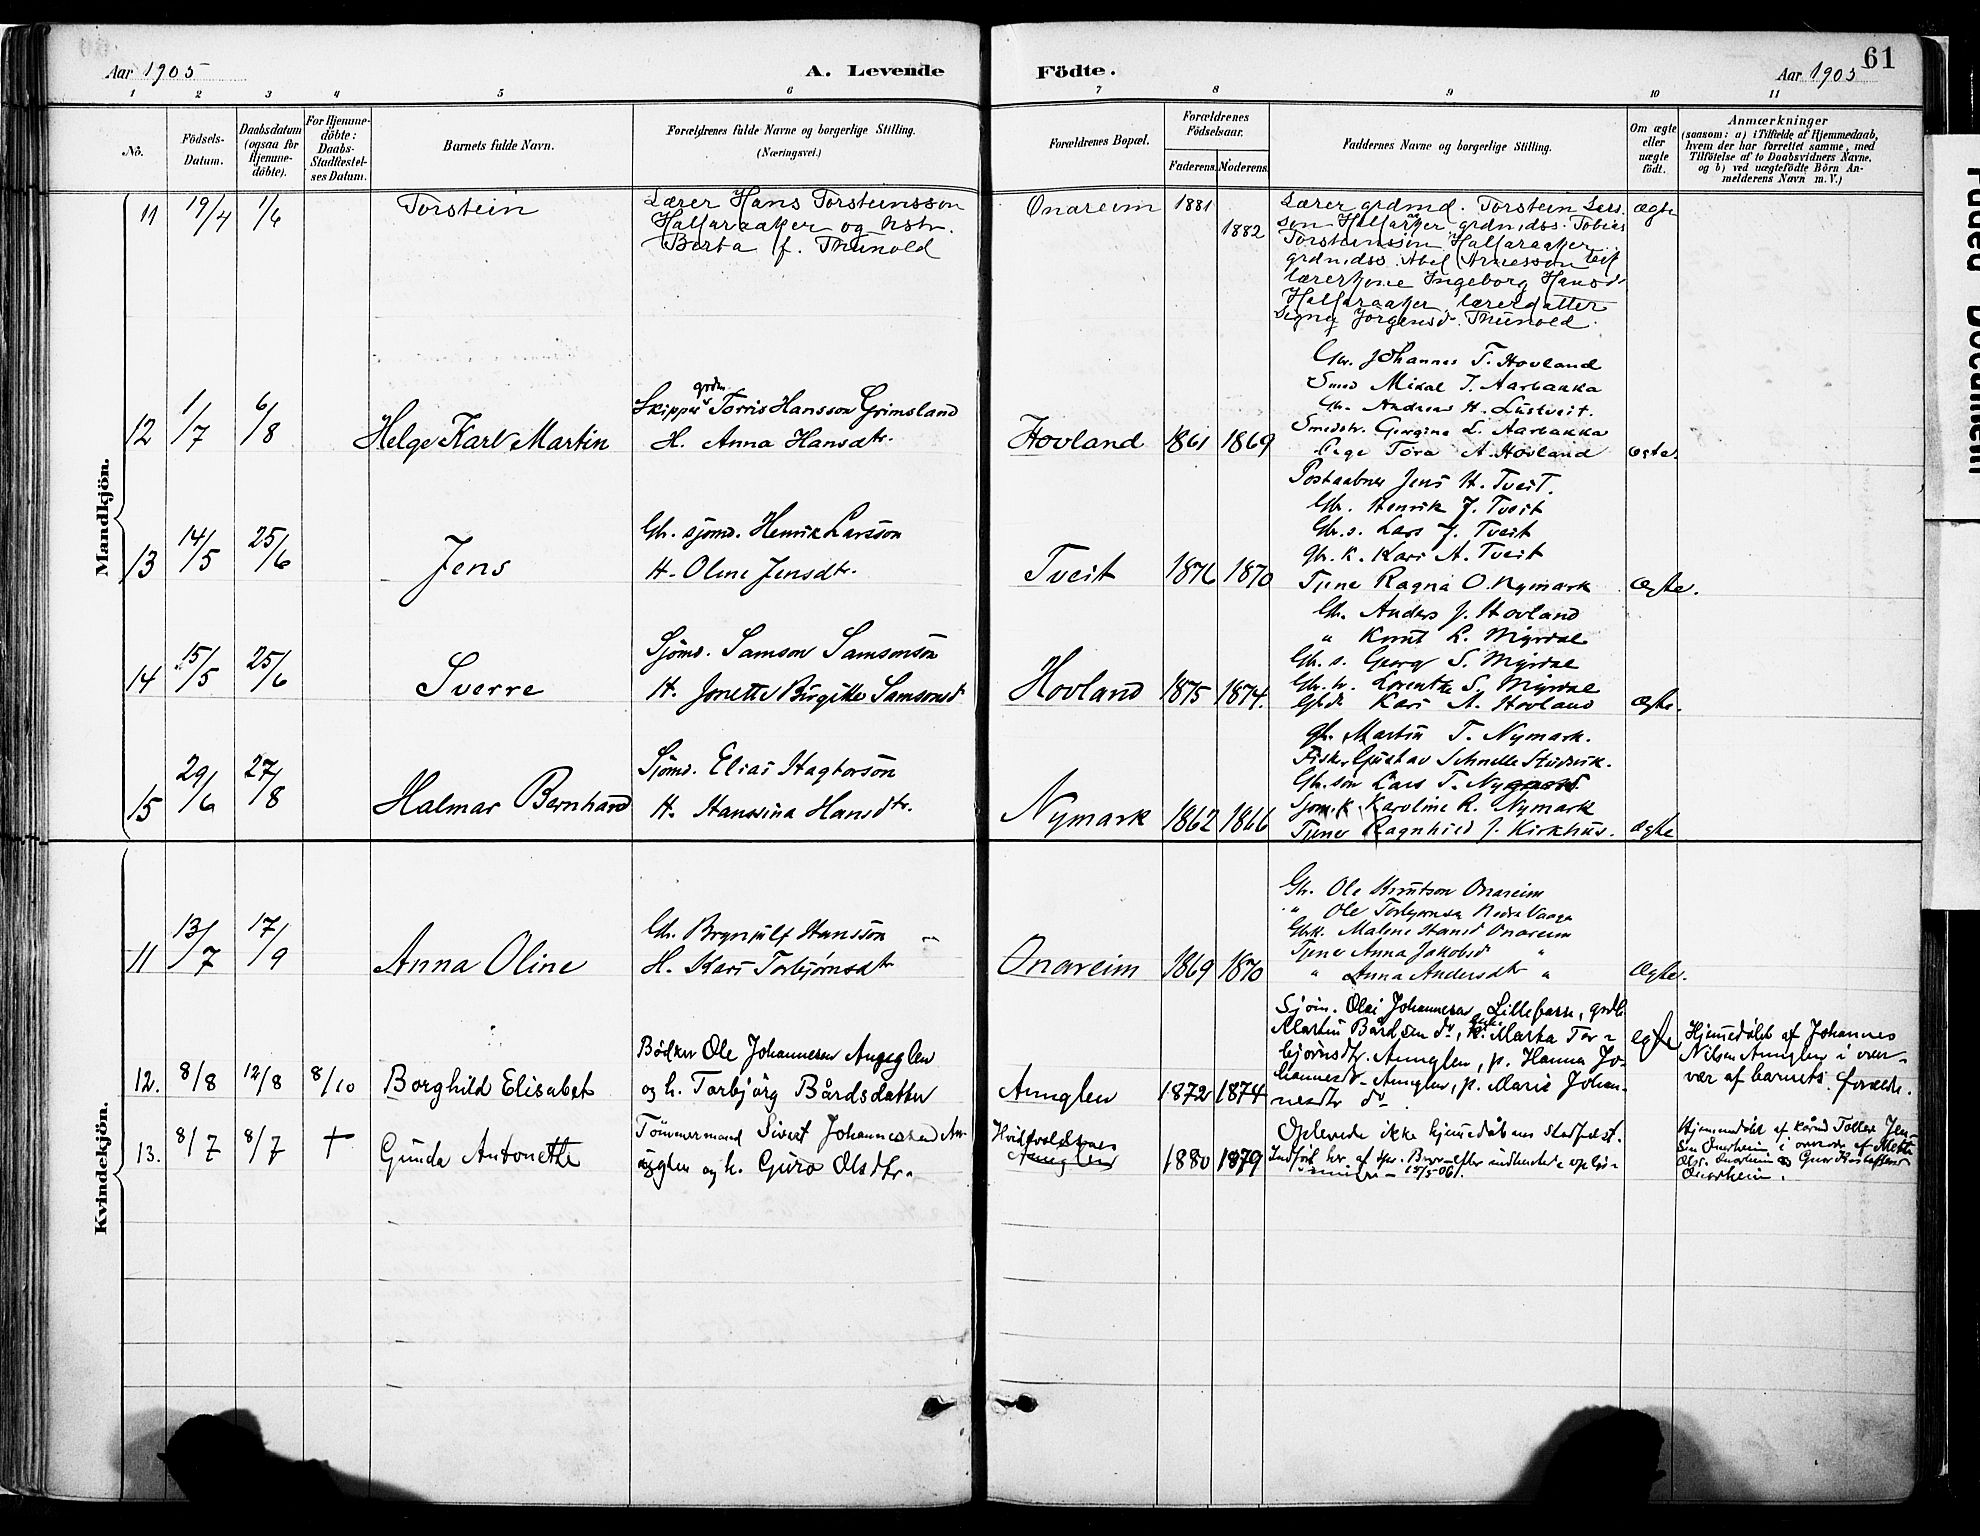 61
Aar 1905
A. Levende Födte.
Aar 1905
1 2 3 4 5 6 7 8 9 10 11
No.
Födsels-Datum.
Daabsdatum (ogsaa for Hjemme-döbte).
For Hjemme-döbte: Daabs-Stadfæstel-ses Datum.
Barnets fulde Navn.
Forældrenes fulde Navne og borgerlige Stilling.
(Næringsvei.)
Forældrenes Bopæl.
Forældrenes Födselsaar.
Faderens. Moderens.
Faddernes Navne og borgerlige Stilling.
Om ægte eller uægte födt.
Anmærkninger
(saasom: a) i Tilfælde af Hjemmedaab,
hvem der har forrettet samme, med
Tilföielse af to Daabsvidners Navne,
og b) ved uægtefödte Börn An-
melderens Navn m. V.)
Mandkjön.
11 19/4 1/6 Torstein
Lærer Hans Torsteinsson
Halfaraaker og hstr.
Berta f. Thunold
Onareim 1881 1882
Lærer grdmd. Torstein Lars-
son Halfaraaker grdmdss. Tobias
Torsteinsson Halfaraaker
grdmdss. Abel Arnesson
lærerkone Ingeborg Hansd.
Halfaraaker, lærerdatter
Signy Jörgensd. Thunold.
ægte
12 1/7 6/8 Helge Karl Martin
Skipper grdm. Torris Hansson Grimsland
H. Anna Hansdtr.
Hovland 1861 1869
Gbr. Johannes T. Hovland
Smed Mikal T. Aarbakka
Gbr. Andreas H. Lustveit.
Smedstr. Gurgina L. Aarbakka
Pige Tora A. Hovland
ægte.
13 14/5 25/6 Jens
Gbr. sjömd. Henrik Larsson
H. Oline Jensdtr.
Tveit 1876 1870
Postaabner Jens H. Tveit.
Gbr. Henrik J. Tveit
Gbr. s. Lars J. Tveit
gbr. k. Kari A. Tveit
Tjene Ragna O. Nymark
Ægte.
14 15/5 25/6 Sverre
Sjömd. Samson Samsonson
H. Jonette Birgitte Samsonsd
Hovland 1875 1874.
Gbr. Anders J. Hovland
" Knut L. Myrdal
Gbr. s. Georg S. Myrdal
Lorentze S. Myrdal
Kari A. Hovland
Ægte.
15 29/6 27/8 Halmar Bernhard
Sjömd. Elias Hagtorson
H. Hansina Hansdtr.
Nymark 1862 1866
gbr. Martin T. Nymark.
Fisker Gustav Schnelle
Gbr. sön Lars T. Nygaard
Sjöm. K. Karoline R. Nymark
Tjener Ragnhild J. Kirkhus.
Ægte
Kvindekjön.
11 13/7 17/9 Anna Oline
Gbr. Brynjulf Hansson
H. Kari Torbjørnsdtr
Onareim 1869 1870
Gbr. Ole Knutson Onareim
" Ole Torbjørnsen Nedre Vaage
Gbrk. Malene Hansd Onareim
Tjene Anna Jakobsd "
" Anna Andersdtr "
Ægte.
12. 8/8 12/8 8/10 Borghild Elisabet
Bödker Ole Johannesen
og h. Torbjörg Bårdsdatter
Aunglen 1872 1874
Sjöm. Olai Johannesen Lillefosse, grdb.
Martin Bårdsen do, Marta Tor-
bjørnsdtr. Aunglen, p. Hanna Jo-
hannesdr Aunglen, p. Marie Johan-
nesdtr do
egte
Hjemmedöbt af Johannes
Nilsen Aunglen i over-
vær af barnets forældr.
13. 8/7 8/7 † Gunda Antonette
Tömmermand Sivert Johannesen
og h. Guro Olsdtr.
Aunglen 1880 1879
Oplevede ikke hjemmedåbens stadfæst.
Indfört her af efter indhentede oplys-
ninger 15/5 06.
Hjemmedöbt af Tollef Jen-
sen Onarheim i overvær af Mette
Olsd. Onarheim og
Onarheim.